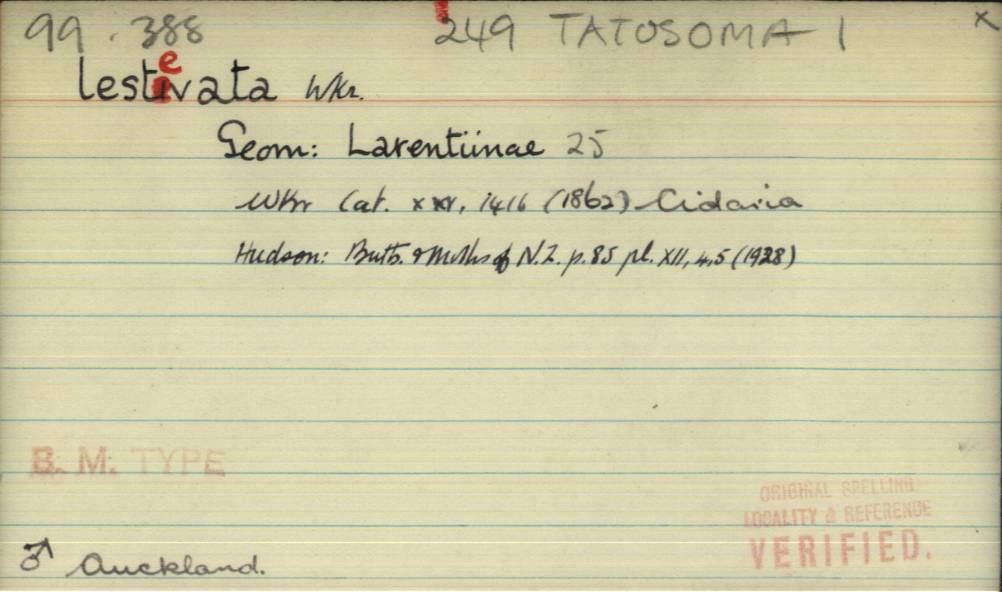 99 . 388 249 TATOSOMA 1 x
lestevata Wkr.
Geom: Larentiinae 25
Wkr Cat. xxv, 1416 (1862) Cidaria
Hudson: Butts. & Moths of N.Z. p.85 pl. XII, 4,5 (1928)
B. M. TYPE
ORIGINAL SPELLING
LOCALITY & REFERENCE
VERIFIED.
♂ Auckland.